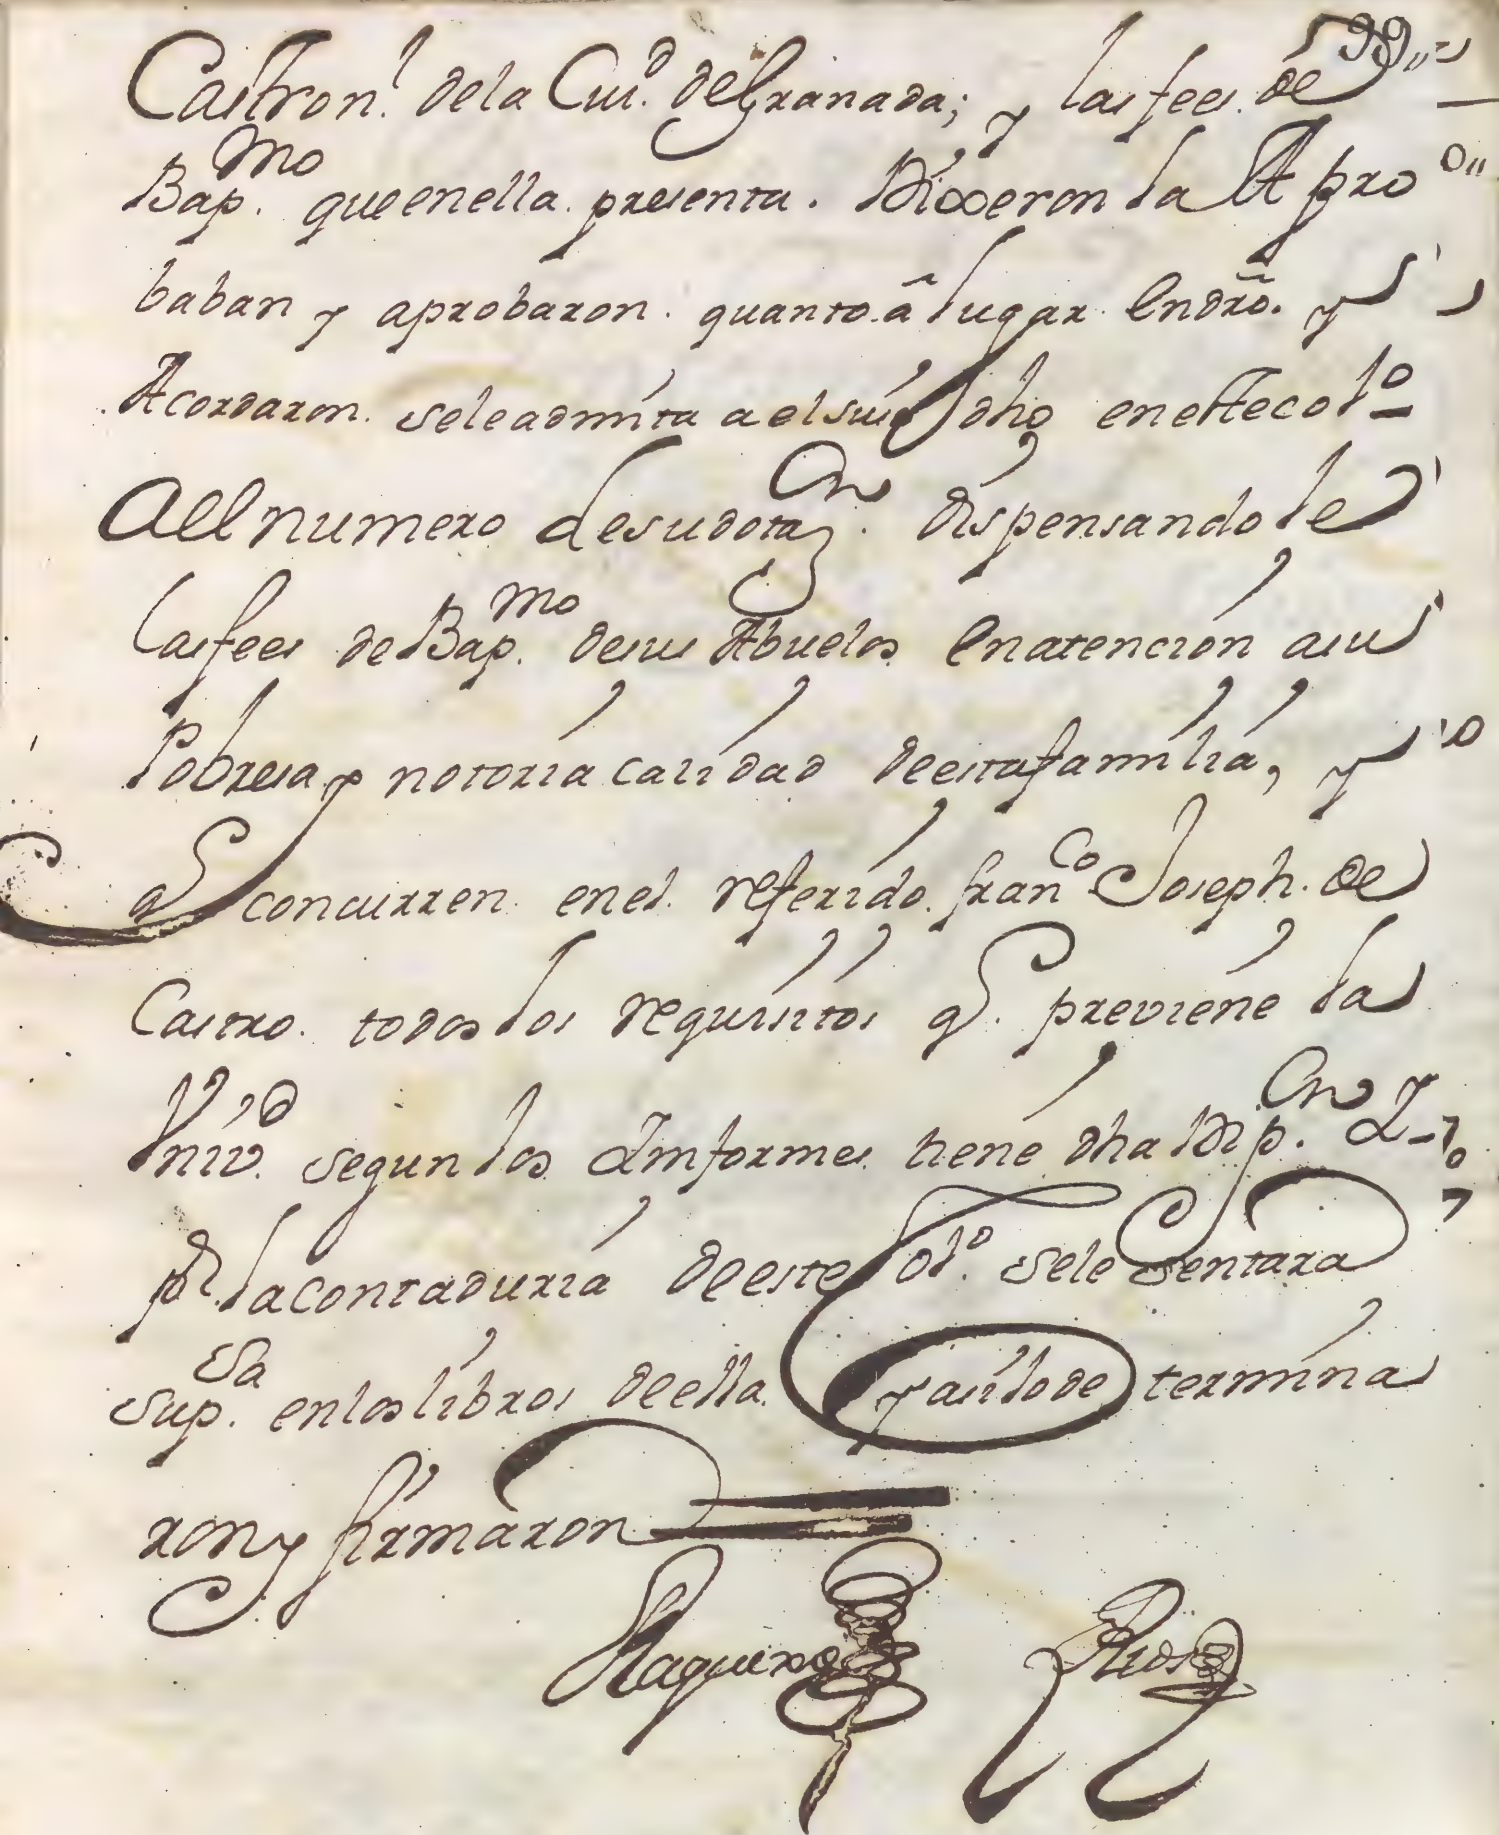 99
Castron.l dela Ciu.d deGranada; y las fees de
Bap.mo que en ella presenta. Dixeron la Apro
baban y aprobaron quanto â lugar en dr̃o. y
Acordaron sele admita a el suso dho en este Col.o
A el numero de su dotaz.on dispensandole
las fees de Bap.mo de sus Abuelos en atencion a su
Pobresa, y notoria calidad de esta familia, y
q concurren en el referido fran.co Joseph. de
Castro todos los requisitos q. previene la
Univ.d segun los Imformes tiene dha Dip.on I
p.r la contaduria de este Col.o sele sentara
su p.sa en los libros de ella y asi lo de termina
ron y firmaron
Rios